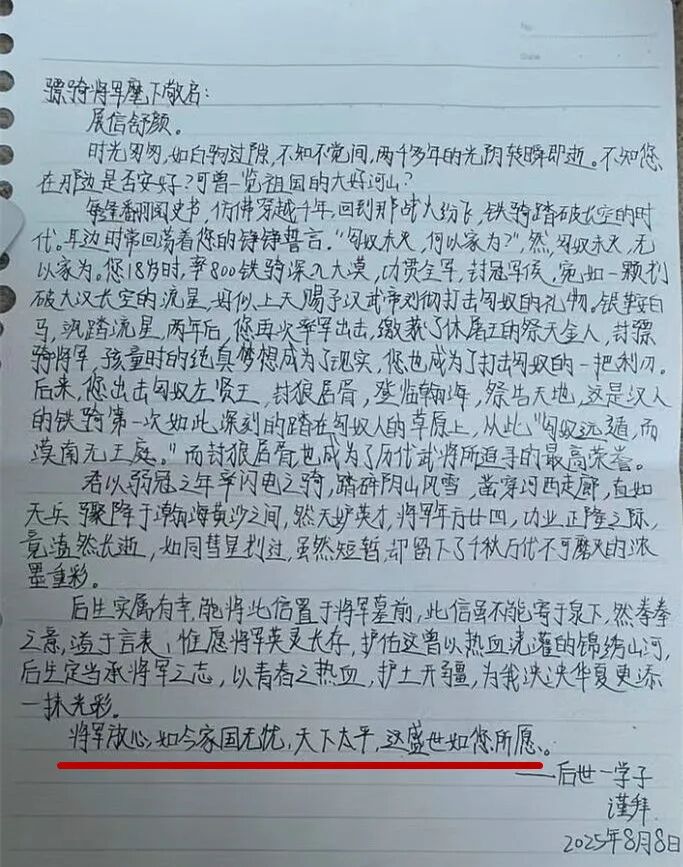 No.
Date
骠骑将军麾下敬启：
展信舒颜。
时光匆匆，如白驹过隙，不知不觉间，两千多年的光阴转瞬即逝。不知您
在那边是否安好？可曾一览祖国的大好河山？
每每翻阅史书，仿佛穿越千年，回到那战火纷飞，铁骑踏破长空的时
代。耳边时常回荡着您的铮铮誓言。“匈奴未灭，何以家为？”，然，匈奴未灭，无
以家为。您18岁时，率800铁骑深入大漠，功贯全军，封冠军侯，宛如一颗划
破大汉长空的流星，好似上天赐予汉武帝刘彻打击匈奴的礼物。银鞍白
马，飒踏流星，两年后，您再次率军出击，缴获了休屠王的祭天金人，封骠
骑将军，孩童时的纯真梦想成为了现实，您也成为了打击匈奴的一把利刃。
后来，您出击匈奴左贤王，封狼居胥，登临翰海，祭告天地，这是汉人
的铁骑第一次如此深刻的踏在匈奴人的草原上，从此“匈奴远遁，而
漠南无王庭。”而封狼居胥也成为了历代武将所追寻的最高荣誉。
君以弱冠之年率闪电之骑，踏碎阴山风雪，凿穿河西走廊，直如
天兵骤降于瀚海黄沙之间，然天妒英才，将军年方廿四，功业正隆之际，
竟溘然长逝，如同彗星划过，虽然短暂，却留下了千秋万代不可磨灭的浓
墨重彩。
后生实属有幸，能将此信置于将军墓前，此信虽不能寄于泉下，然拳拳
之意，溢于言表，惟愿将军英灵长存，护佑这曾以热血浇灌的锦绣山河，
后生定当承将军之志，以青春之热血，护土开疆，为我泱泱华夏更添
一抹光彩。
将军放心，如今家国无忧，天下太平，这盛世如您所愿。
——后世一学子
谨拜
2025年8月8日